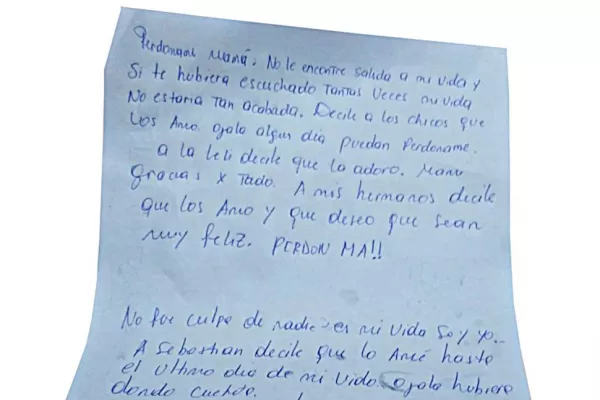 Perdoname Mamá. No le encontre salida a mi vida y
Si te hubiera escuchado Tantas Veces mi vida
No estaria Tan acabada. Decile a los chicos que
los Amo. ojala algun dia puedan Perdoname.
a la Leli decile que la adoro. Manu
gracias x Todo. A mis hermanos decile
que los Amo y que deseo que sean
muy feliz. PERDON MA!!
No fue culpa de nadie es mi vida Soy yo..
A Sebastian decile que lo Amé hasta
el ultimo dia de mi vida. ojala hubiera